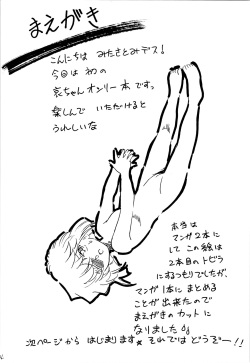 まえがき
こんにちは みたさとみデス!
今回は 初の
哀ちゃんオンリー本ですっ
楽しんで いただけると
うれしいな
本当は
マンガ2本に
して この絵は
2本目のトビラ
にするつもりでしたが、
マンガ1本にまとめる
ことが出来たので
まえがきのカットに
なりました
次ページから はじまります それでは どうぞー!!